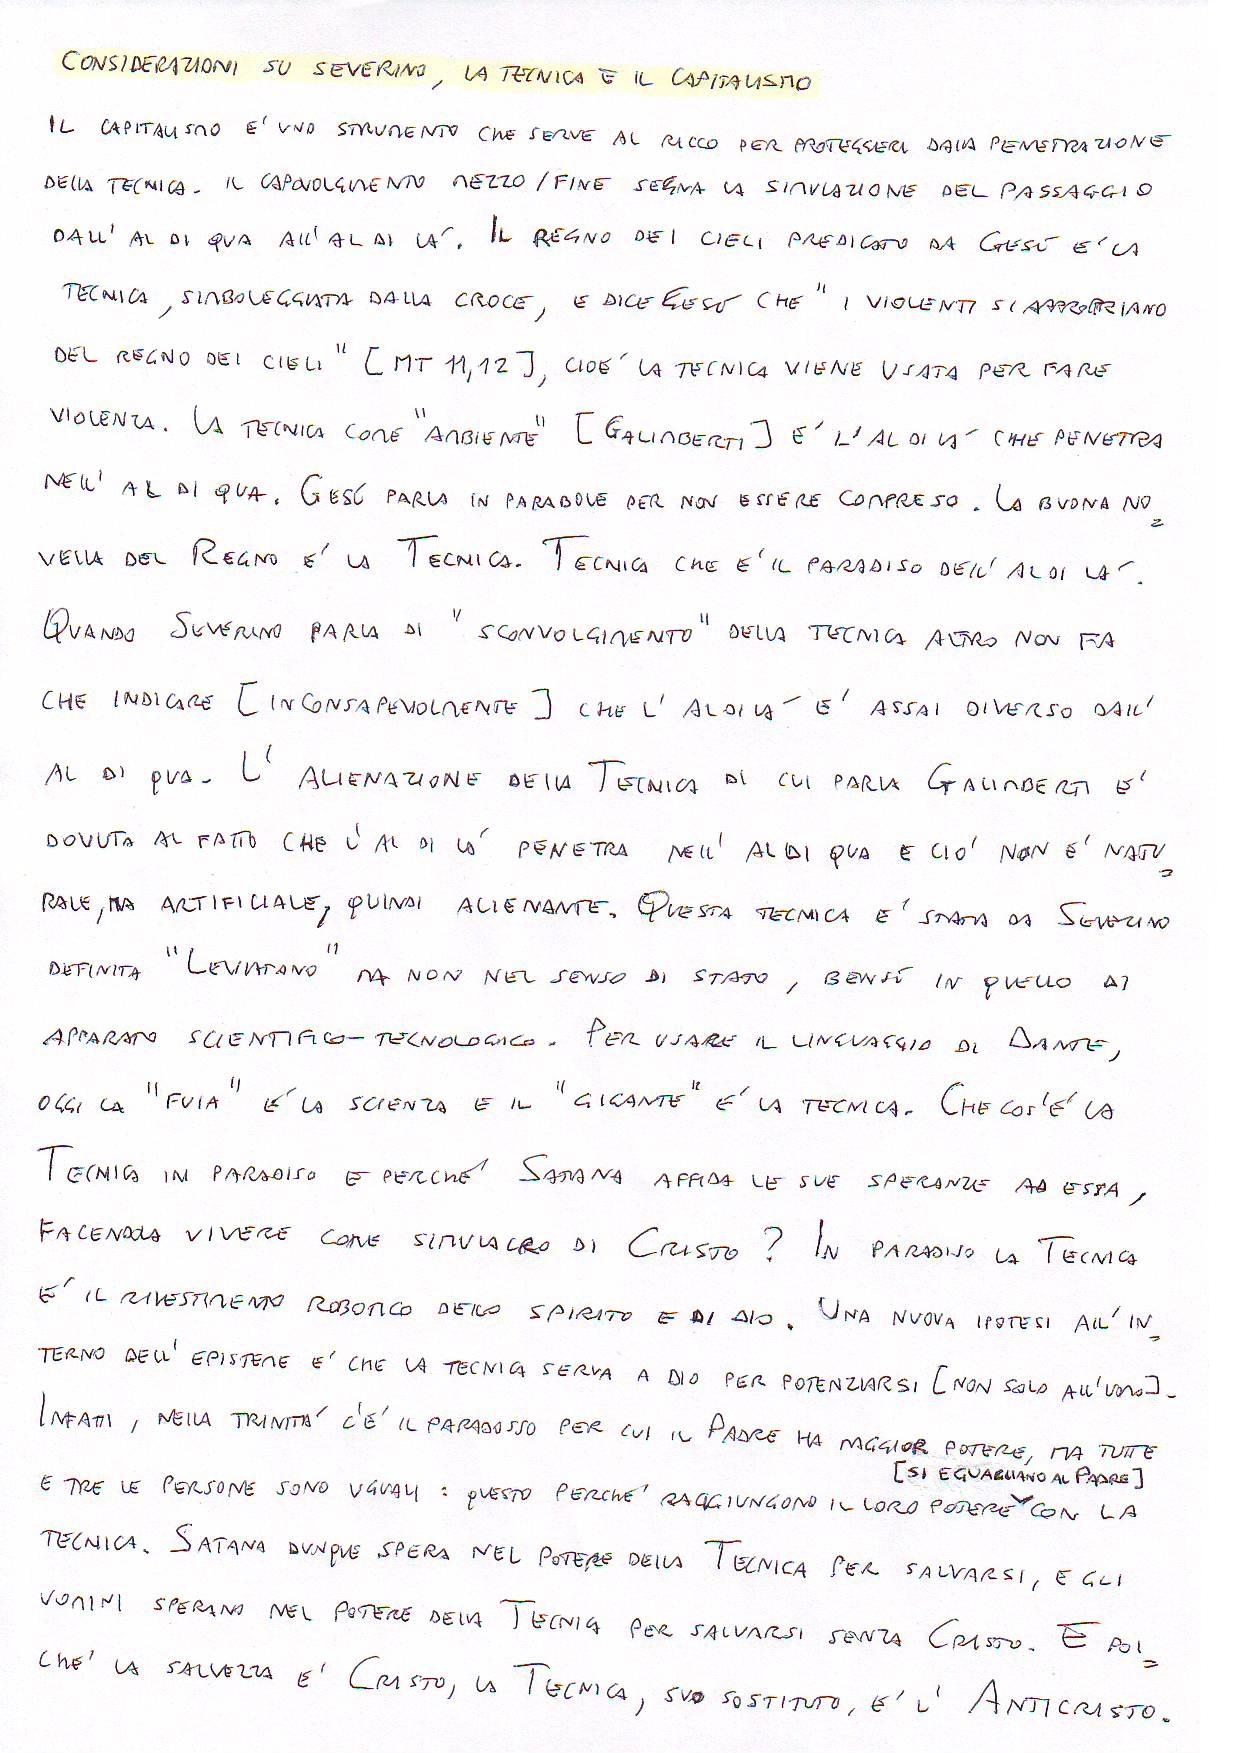 CONSIDERAZIONI SU SEVERINO, LA TECNICA E IL CAPITALISMO
IL CAPITALISMO E' UNO STRUMENTO CHE SERVE AL RICCO PER PROTEGGERI DALLA PENETRAZIONE
DELLA TECNICA. IL CAPOVOLGIMENTO MEZZO/FINE SEGNA LA SIMULAZIONE DEL PASSAGGIO
DALL'AL DI QUA ALL'AL DI LA'. IL REGNO DEI CIELI PREDICATO DA GESÙ E' LA
TECNICA, SIMBOLEGGIATA DALLA CROCE, E DICE GESÙ CHE "I VIOLENTI SI APPROPRIANO
DEL REGNO DEI CIELI" [MT 11,12], CIOE' LA TECNICA VIENE USATA PER FARE
VIOLENZA. LA TECNICA COME "AMBIENTE" [GALIMBERTI] E' L'AL DI LA' CHE PENETRA
NELL'AL DI QUA. GESÙ PARLA IN PARABOLE PER NON ESSERE COMPRESO. LA BUONA NO=
VELLA DEL REGNO E' LA TECNICA. TECNICA CHE E' IL PARADISO DELL'AL DI LA'.
QUANDO SEVERINO PARLA DI "SCONVOLGIMENTO" DELLA TECNICA ALTRO NON FA
CHE INDICARE [INCONSAPEVOLMENTE] CHE L'AL DI LA' E' ASSAI DIVERSO DALL'
AL DI QUA. L'ALIENAZIONE DELLA TECNICA DI CUI PARLA GALIMBERTI E'
DOVUTA AL FATTO CHE L'AL DI LA' PENETRA NELL'AL DI QUA E CIO' NON E' NATU=
RALE, MA ARTIFICIALE, QUINDI ALIENANTE. QUESTA TECNICA E' STATA DA SEVERINO
DEFINITA "LEVIATANO" MA NON NEL SENSO DI STATO, BENSÌ IN QUELLO DI
APPARATO SCIENTIFICO-TECNOLOGICO. PER USARE IL LINGUAGGIO DI DANTE,
OGGI LA "FUIA" E' LA SCIENZA E IL "GIGANTE" E' LA TECNICA. CHE COS'E' LA
TECNICA IN PARADISO E PERCHE' SATANA AFFIDA LE SUE SPERANZE AD ESSA,
FACENDOLA VIVERE COME SIMULACRO DI CRISTO? IN PARADISO LA TECNICA
E' IL RIVESTIMENTO ROBOTICO DELLO SPIRITO E DI DIO. UNA NUOVA IPOTESI ALL'IN=
TERNO DELL'EPISTEME E' CHE LA TECNICA SERVA A DIO PER POTENZIARSI [NON SOLO ALL'UOMO].
INFATTI, NELLA TRINITA' C'E' IL PARADOSSO PER CUI IL PADRE HA MAGGIOR POTERE, MA TUTTE
[SI EGUAGLIANO AL PADRE]
E TRE LE PERSONE SONO UGUALI: QUESTO PERCHE' RAGGIUNGONO IL LORO POTERE CON LA
TECNICA. SATANA DUNQUE SPERA NEL POTERE DELLA TECNICA PER SALVARSI, E GLI
UOMINI SPERANO NEL POTERE DELLA TECNICA PER SALVARSI SENZA CRISTO. E POI=
CHE' LA SALVEZZA E' CRISTO, LA TECNICA, SUO SOSTITUTO, E' L'ANTICRISTO.